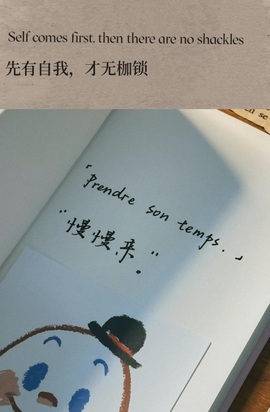 Self comes first. then there are no shackles
先有自我，才无枷锁
「Prendre son temps.」
"慢慢来"。